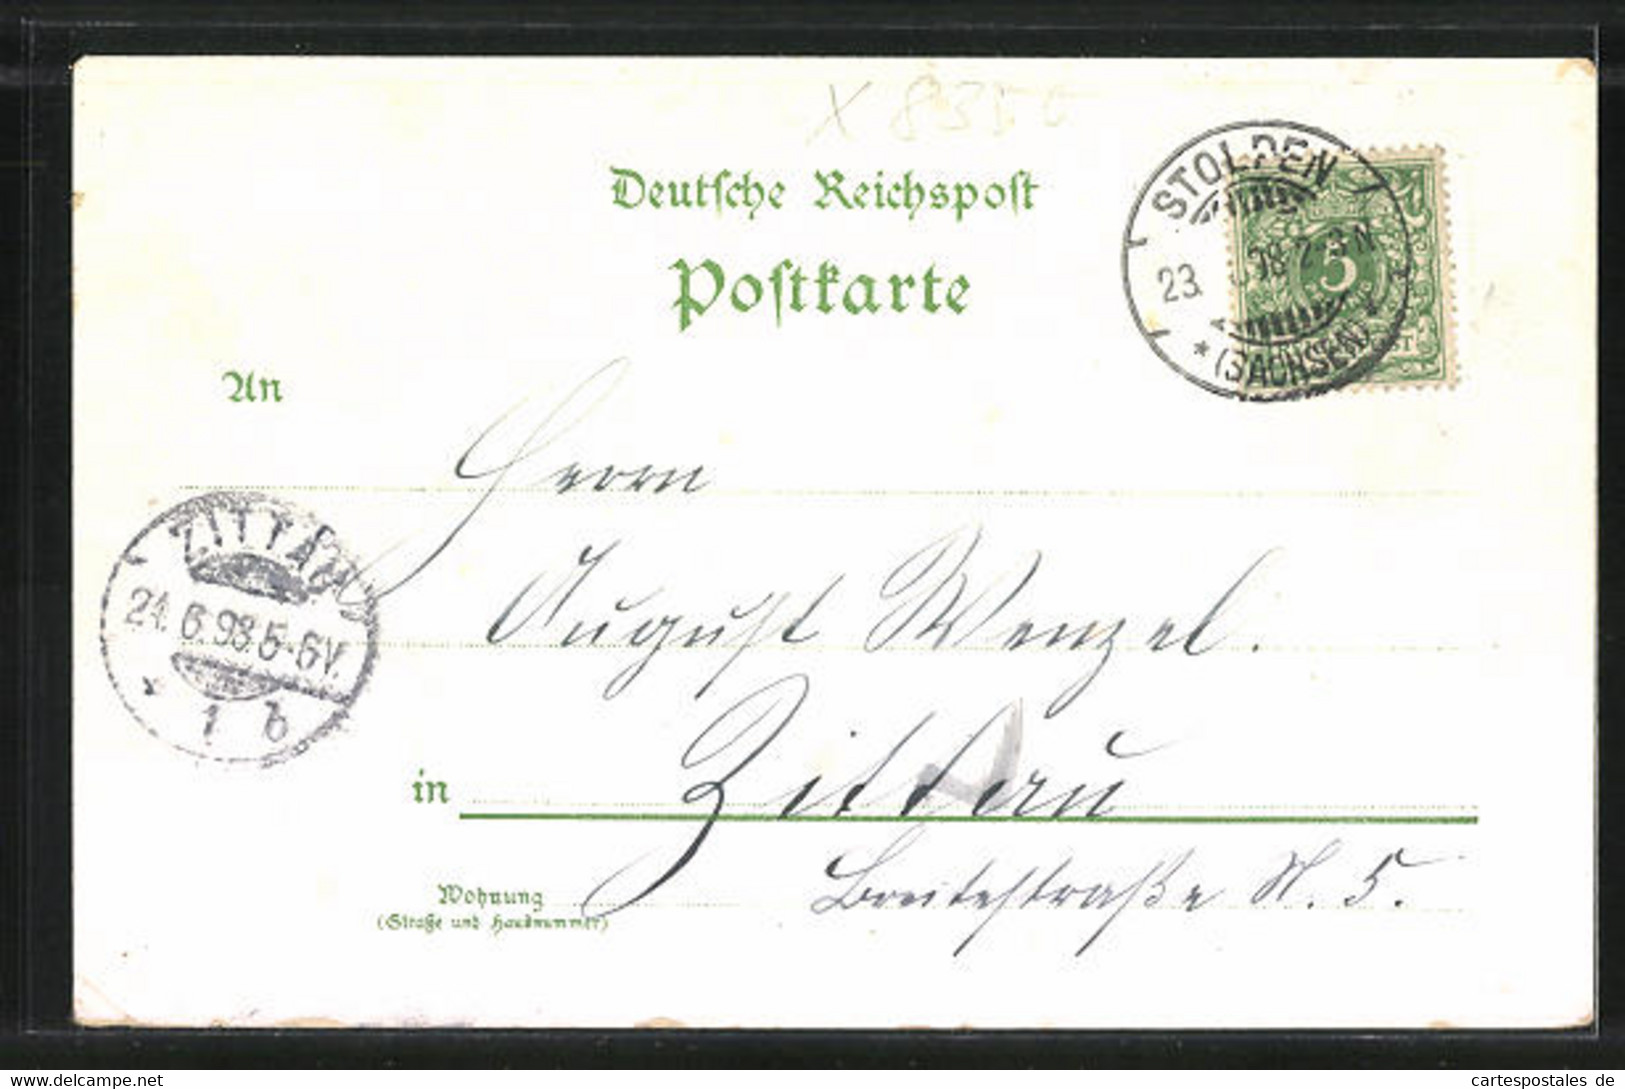 X 835
Deutsche Reichspost
Postkarte
STOLPEN
23. 98 2-3N
5
* (SACHSEN) *
An
Herrn
ZITTAU
24.6.98.5-6V.
* 1 b
August Wenzel.
in Zittau
Breitestraße N. 5.
Wohnung
(Straße und Hausnummer)
www.delcampe.net
cartespostales de